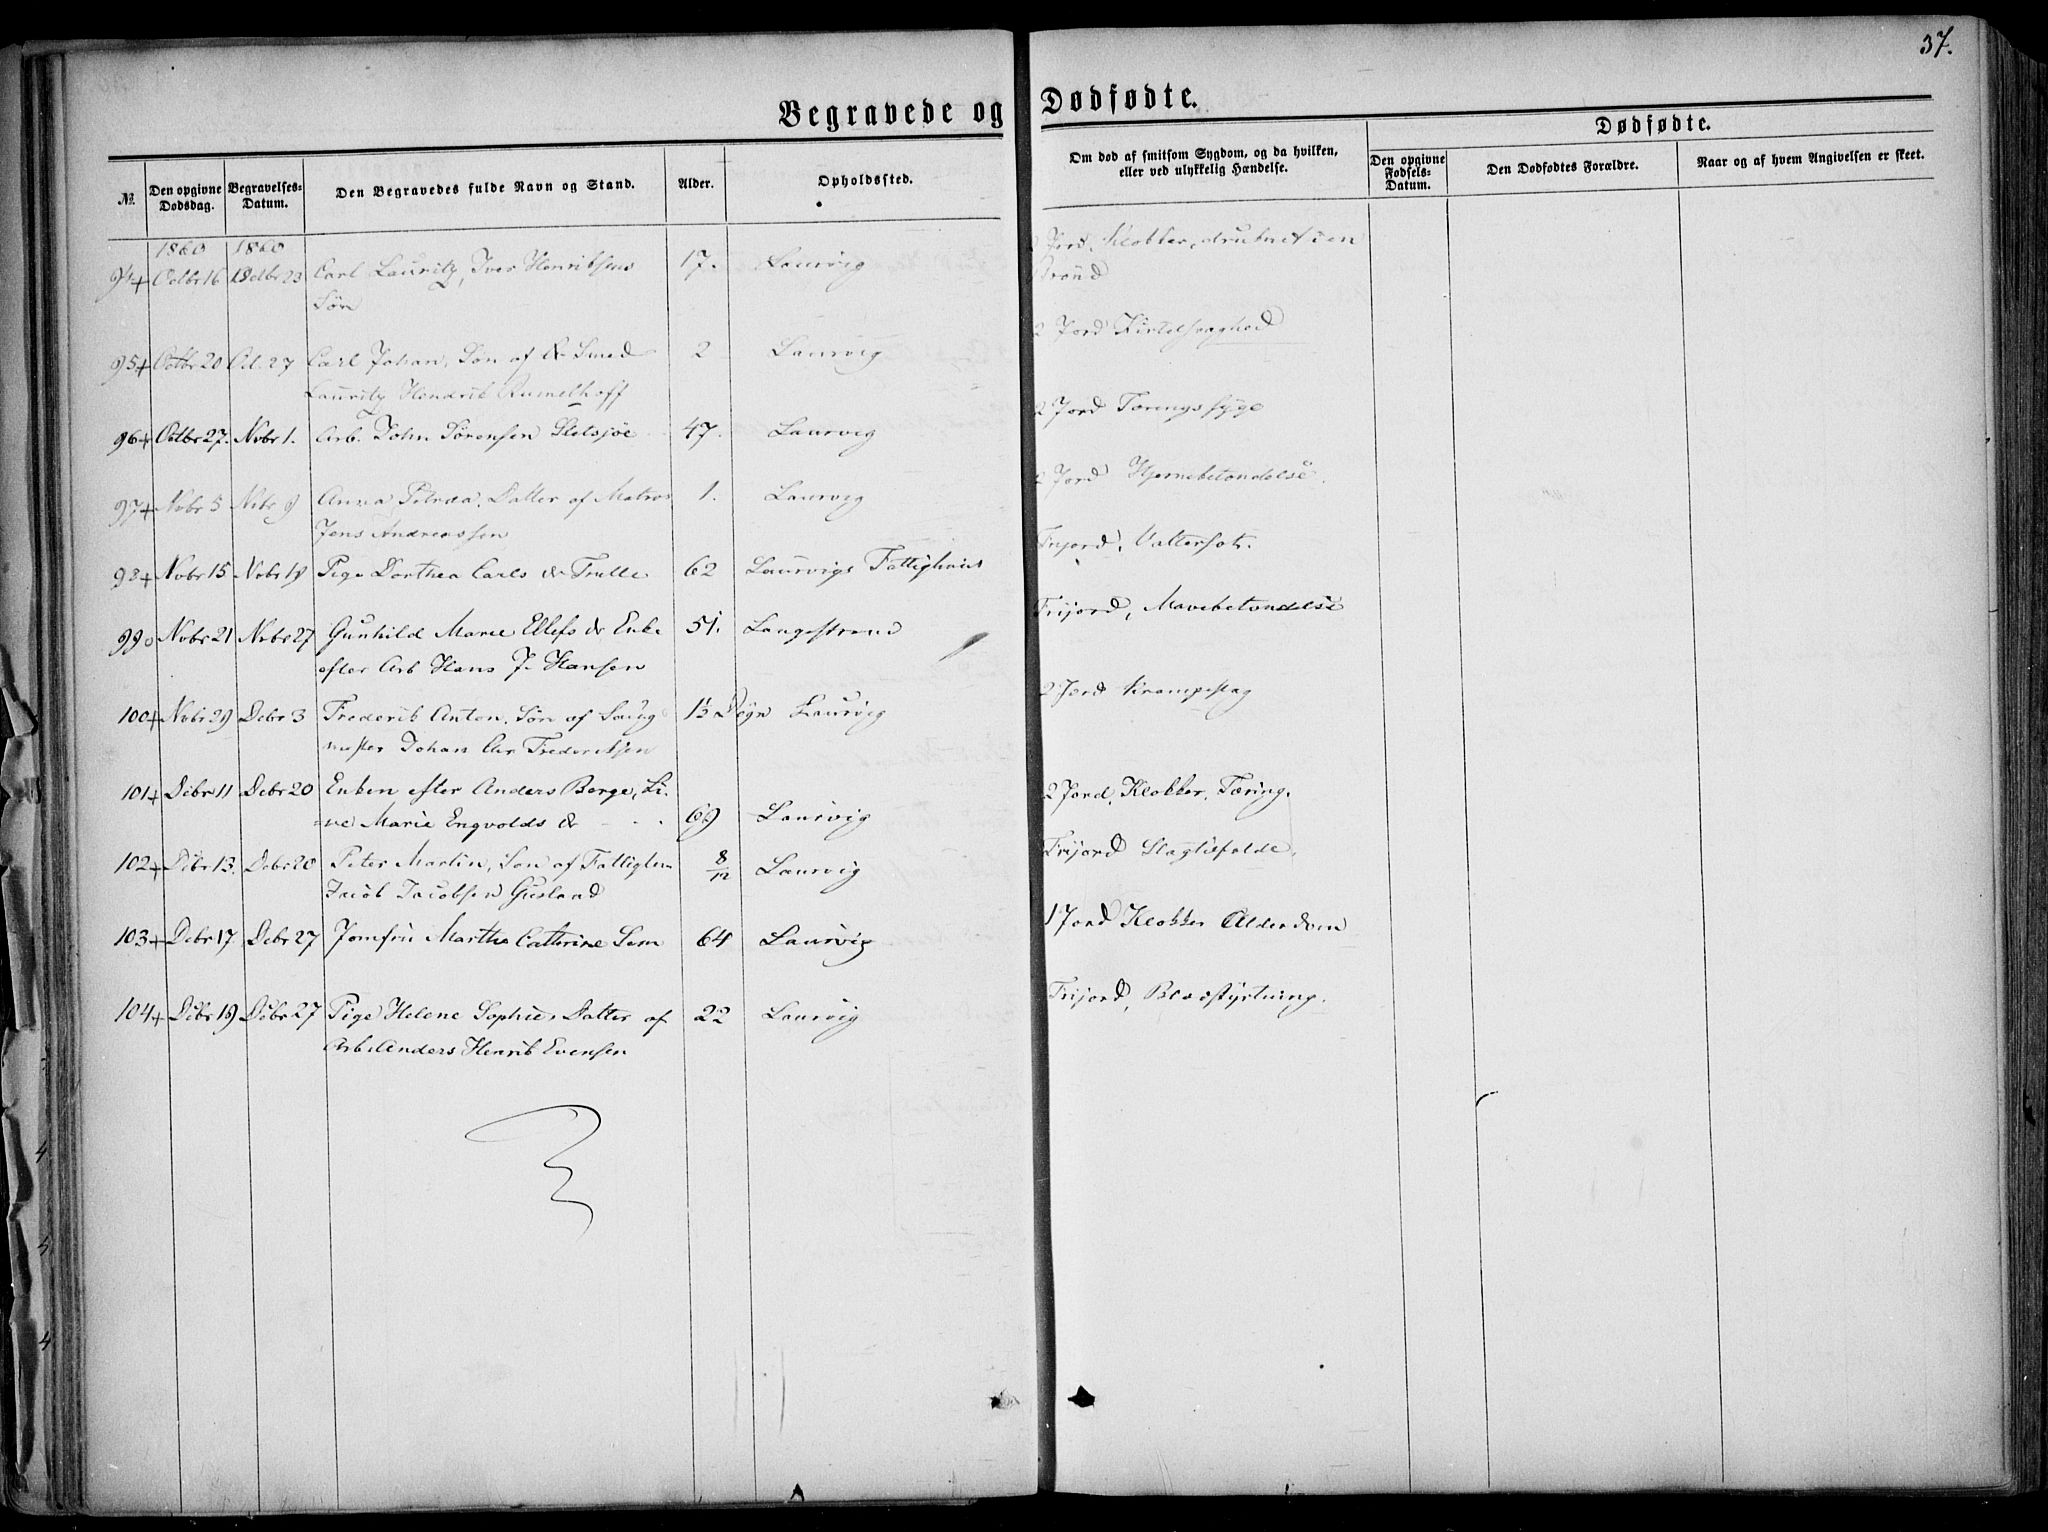 37.
Begravede og Dødfødte.
№
Den opgivne Dødsdag.
Begravelses-Datum.
Den Begravedes fulde Navn og Stand.
Alder.
Opholdssted.
Om død af smitsom Sygdom, og da hvilken, eller ved ulykkelig Hændelse.
Dødfødte.
Den opgivne Fødsels-Datum.
Den Dødfødtes Forældre.
Naar og af hvem Angivelsen er skeet.
1860 1860
94+ Octbr 16 Octbr 23 Carl Lauritz, Iver Henriksens 17. Laurvig Jord, Klokker, druknet i en
Søn Brønd
95+ Octbr 20 Oct. 27 Carl Johan, Søn af Smed 2 Laurvig 2 Jord Kirtelsvaghed
Lauritz Hendrik Rumelhoff
96+ Octbr 27. Nvbr 1. Arb. John Sørensen Sletsjøe 47. Laurvig 2 Jord Tæringssyge
97+ Nvbr 5 Nvbr 9 Anna Petrea, Datter af Matros 1. Laurvig 2 Jord Hjernebetændelse.
Jens Andreassen
98+ Nvbr 15 Nvbr 19 Pige Dorthea Carls dr Trulle 62 Laurvigs Fattighuus Frijord, Vattersot.
99o Nvbr 21 Nvbr 27 Gunhild Marie Ellefs dr Enke 51. Langestrand Frijord, Mavebetændelse
efter Arb Hans J. Hansen
100+ Nvbr 29 Debr 3 Frederik Anton, Søn af Saug- 1½ Døgn Laurvig 2 Jord Krampeslag
mester Johan Chr Frederiksen
101+ Debr 11 Debr 20 Enken efter Anders Berge, Li-
=ne Marie Engvolds dr 69 Laurvig 2 Jord, Klokker, Tæring.
102+ Debr 13. Debr 20 Peter Martin, Søn af Fattiglem 8/12 Laurvig Frijord Slagtilfælde.
Jacob Jacobsen Gusland
103+ Debr 17 Debr 27 Jomfru Marthe Cathrine Sem 64 Laurvig 1 Jord Klokker Alderdom
104+ Debr 19 Debr 27 Pige Helene Sophie, Datter af 22 Laurvig Frijord, Blodstyrtning.
Arb. Anders Henrik Evensen